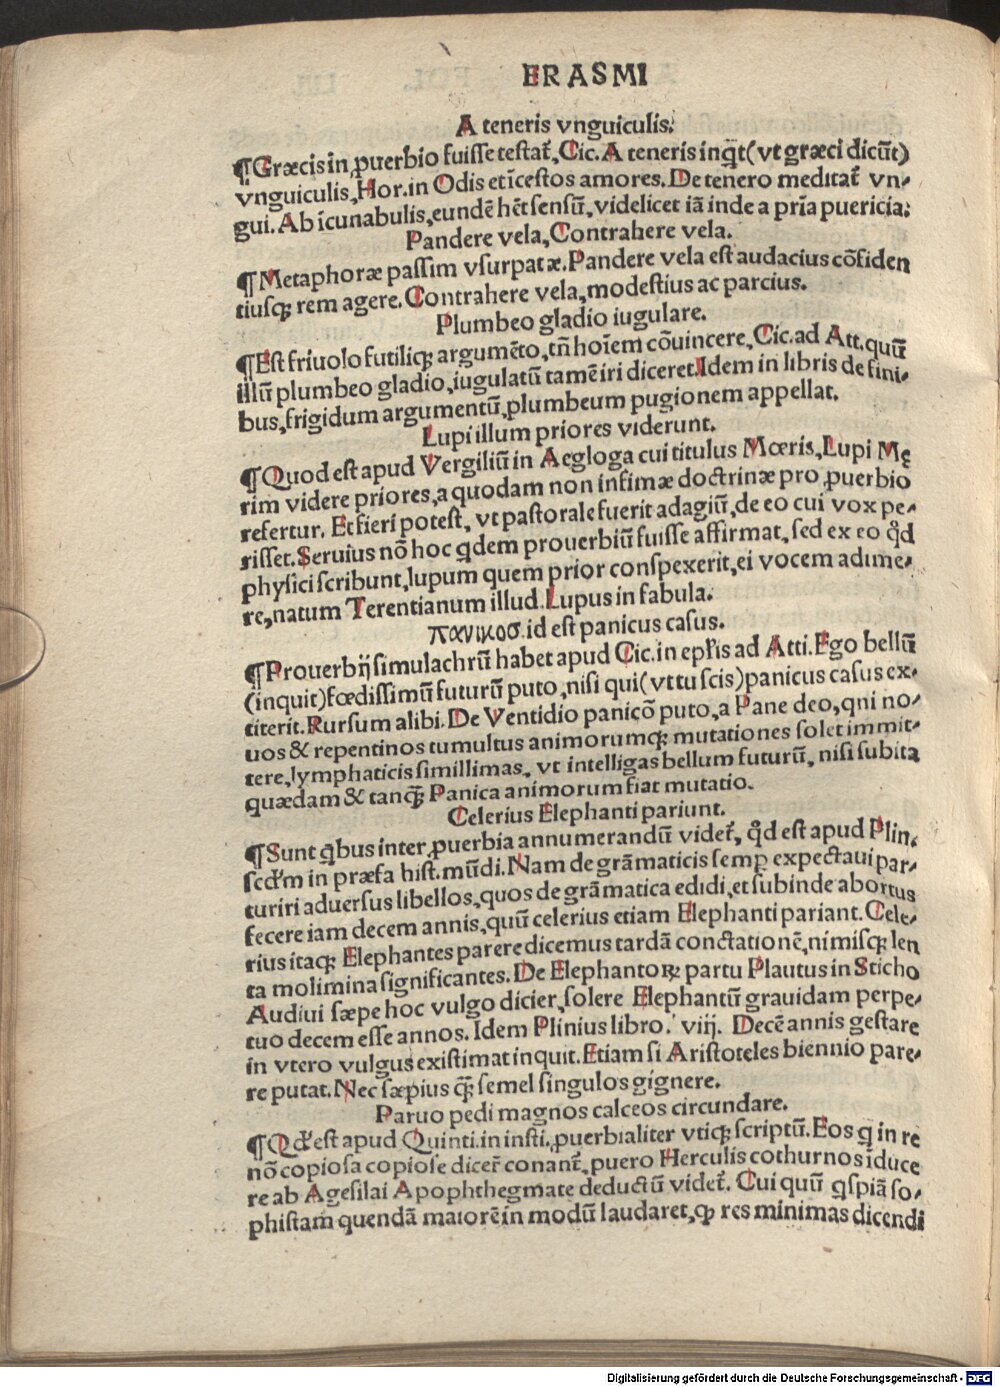 ERASMI
A teneris vnguiculis.
¶Græcis in ꝓuerbio fuisse testat᷑, Cic. A teneris inqͥt (vt græci dicūt)
vnguiculis, Hor. in Odis et īcestos amores. De tenero meditat᷑ vn-
gui. Ab īcunabulis, eundē hēt sensū, videlicet iā inde a pr̄ia puericia.
Pandere vela, Contrahere vela.
¶Metaphoræ passim vsurpatæ. Pandere vela est audacius cōfiden
tiusqꝫ rem agere. Contrahere vela, modestius ac parcius.
Plumbeo gladio iugulare.
¶Est friuolo futiliqꝫ argumēto, tn̄ hoīem cōuincere, Cic. ad Att. quū
illū plumbeo gladio, iugulatū tamē iri diceret. Idem in libris de fini-
bus, frigidum argumentū, plumbeum pugionem appellat.
Lupi illum priores viderunt.
¶Quod est apud Vergiliū in Aegloga cui titulus Mœris, Lupi Mę
rim videre priores, a quodam non infimæ doctrinæ pro ꝓuerbio
refertur. Et fieri potest, vt pastorale fuerit adagiū, de eo cui vox pe-
risset. Seruius nō hoc qͥdem prouerbiū fuisse affirmat, sed ex eo qd̓
physici scribunt, lupum quem prior conspexerit, ei vocem adime-
re, natum Terentianum illud. Lupus in fabula.
πανικοσ. id est panicus casus.
¶Prouerbij simulachrū habet apud Cic. in epl̓is ad Atti. Ego bellū
(inquit) fœdissimū futurū puto, nisi qui (vt tu scis) panicus casus ex-
titerit. Rursum alibi. De Ventidio panicō puto, a Pane deo, qui no-
uos & repentinos tumultus animorumqꝫ mutationes solet immit-
tere, lymphaticis simillimas, vt intelligas bellum futurū, nisi subita
quædam & tanqꝫ̄ Panica animorum fiat mutatio.
Celerius Elephanti pariunt.
¶Sunt qͥbus inter ꝓuerbia annumerandū videt᷑, qd̓ est apud Plin.
scd̓m in præfa hist. mūdi. Nam de grāmaticis semꝑ expectaui par-
turiri aduersus libellos, quos de grāmatica edidi, et subinde abortus
fecere iam decem annis, quū celerius etiam Elephanti pariant. Cele-
rius itaqꝫ Elephantes parere dicemus tardā conctationē, nimisqꝫ len
ta molimina significantes. De Elephantoꝝ partu Plautus in Sticho
Audiui sæpe hoc vulgo dicier, solere Elephantū grauidam perpe-
tuo decem esse annos. Idem Plinius libro. viij. Decē annis gestare
in vtero vulgus existimat inquit. Etiam si Aristoteles biennio pare-
re putat. Nec sæpius qꝫ̄ semel singulos gignere.
Paruo pedi magnos calceos circundare.
¶Qd̓ est apud Quinti. in insti. ꝓuerbialiter vtiqꝫ scriptū. Eos qͥ in re
nō copiosa copiose dicer̄ conant᷑, puero Herculis cothurnos īduce
re ab Agesilai Apophthegmate deductū videt᷑. Cui quū qͥspiā so-
phistam quendā maiorē in modū laudaret, ꝙ res minimas dicendi
Digitalisierung gefördert durch die Deutsche Forschungsgemeinschaft - DFG